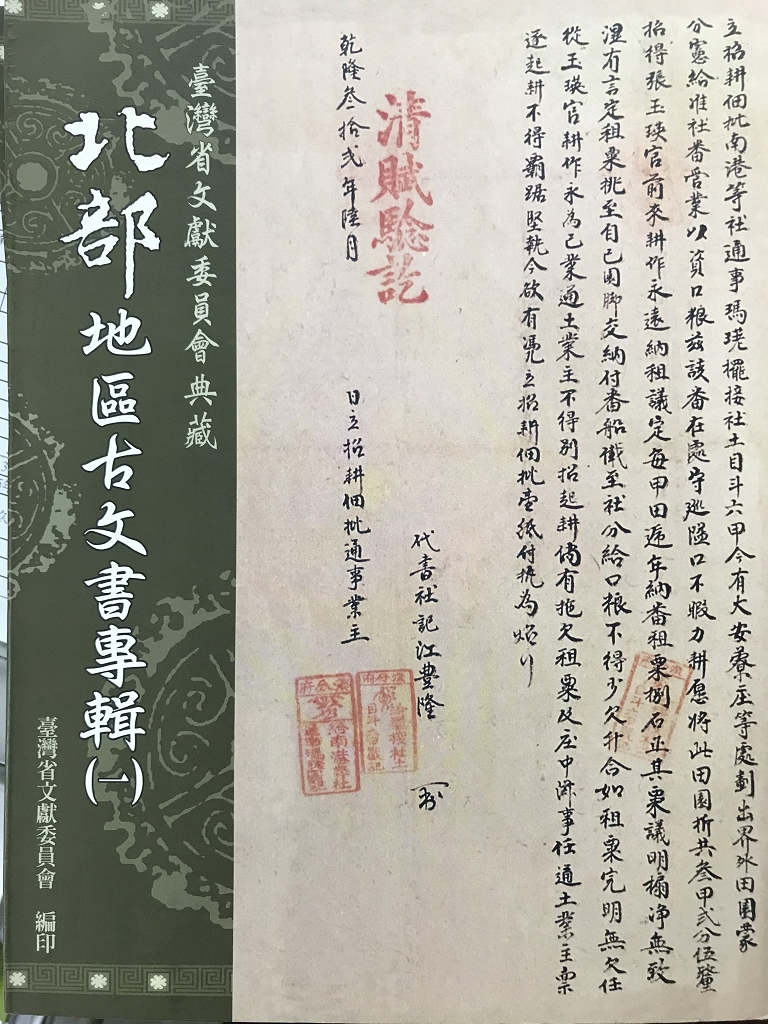 立招耕佃批南港等社通事瑪珖擺接社土目斗六甲今有大安藔庄等處劃出界外田園蒙
分憲給准社番管業以資口粮茲該番在處守廵隘口不暇力耕愿將此田園折共叁甲弍分伍釐
招得張玉瑛官前來耕作永遠納租議定每甲田遞年納番租粟捌石正其粟議明搧净無致
湿有言定租粟挑至自己田脚交納付番船儎至社分給口粮不得少欠升合如租粟完明無欠任
從玉瑛官耕作永為己業通土業主不得別招起耕倘有拖欠租粟及庄中滋事任通土業主禀
逐起耕不得霸踞堅執今欲有憑立招耕佃批壹紙付执為炤
代書社記江豊隆
日立招耕佃批通事業主
清賦驗訖
乾隆叁拾弍年陸月
臺灣省文獻委員會典藏
北部地區古文書專輯(一)
臺灣省文獻委員會 編印